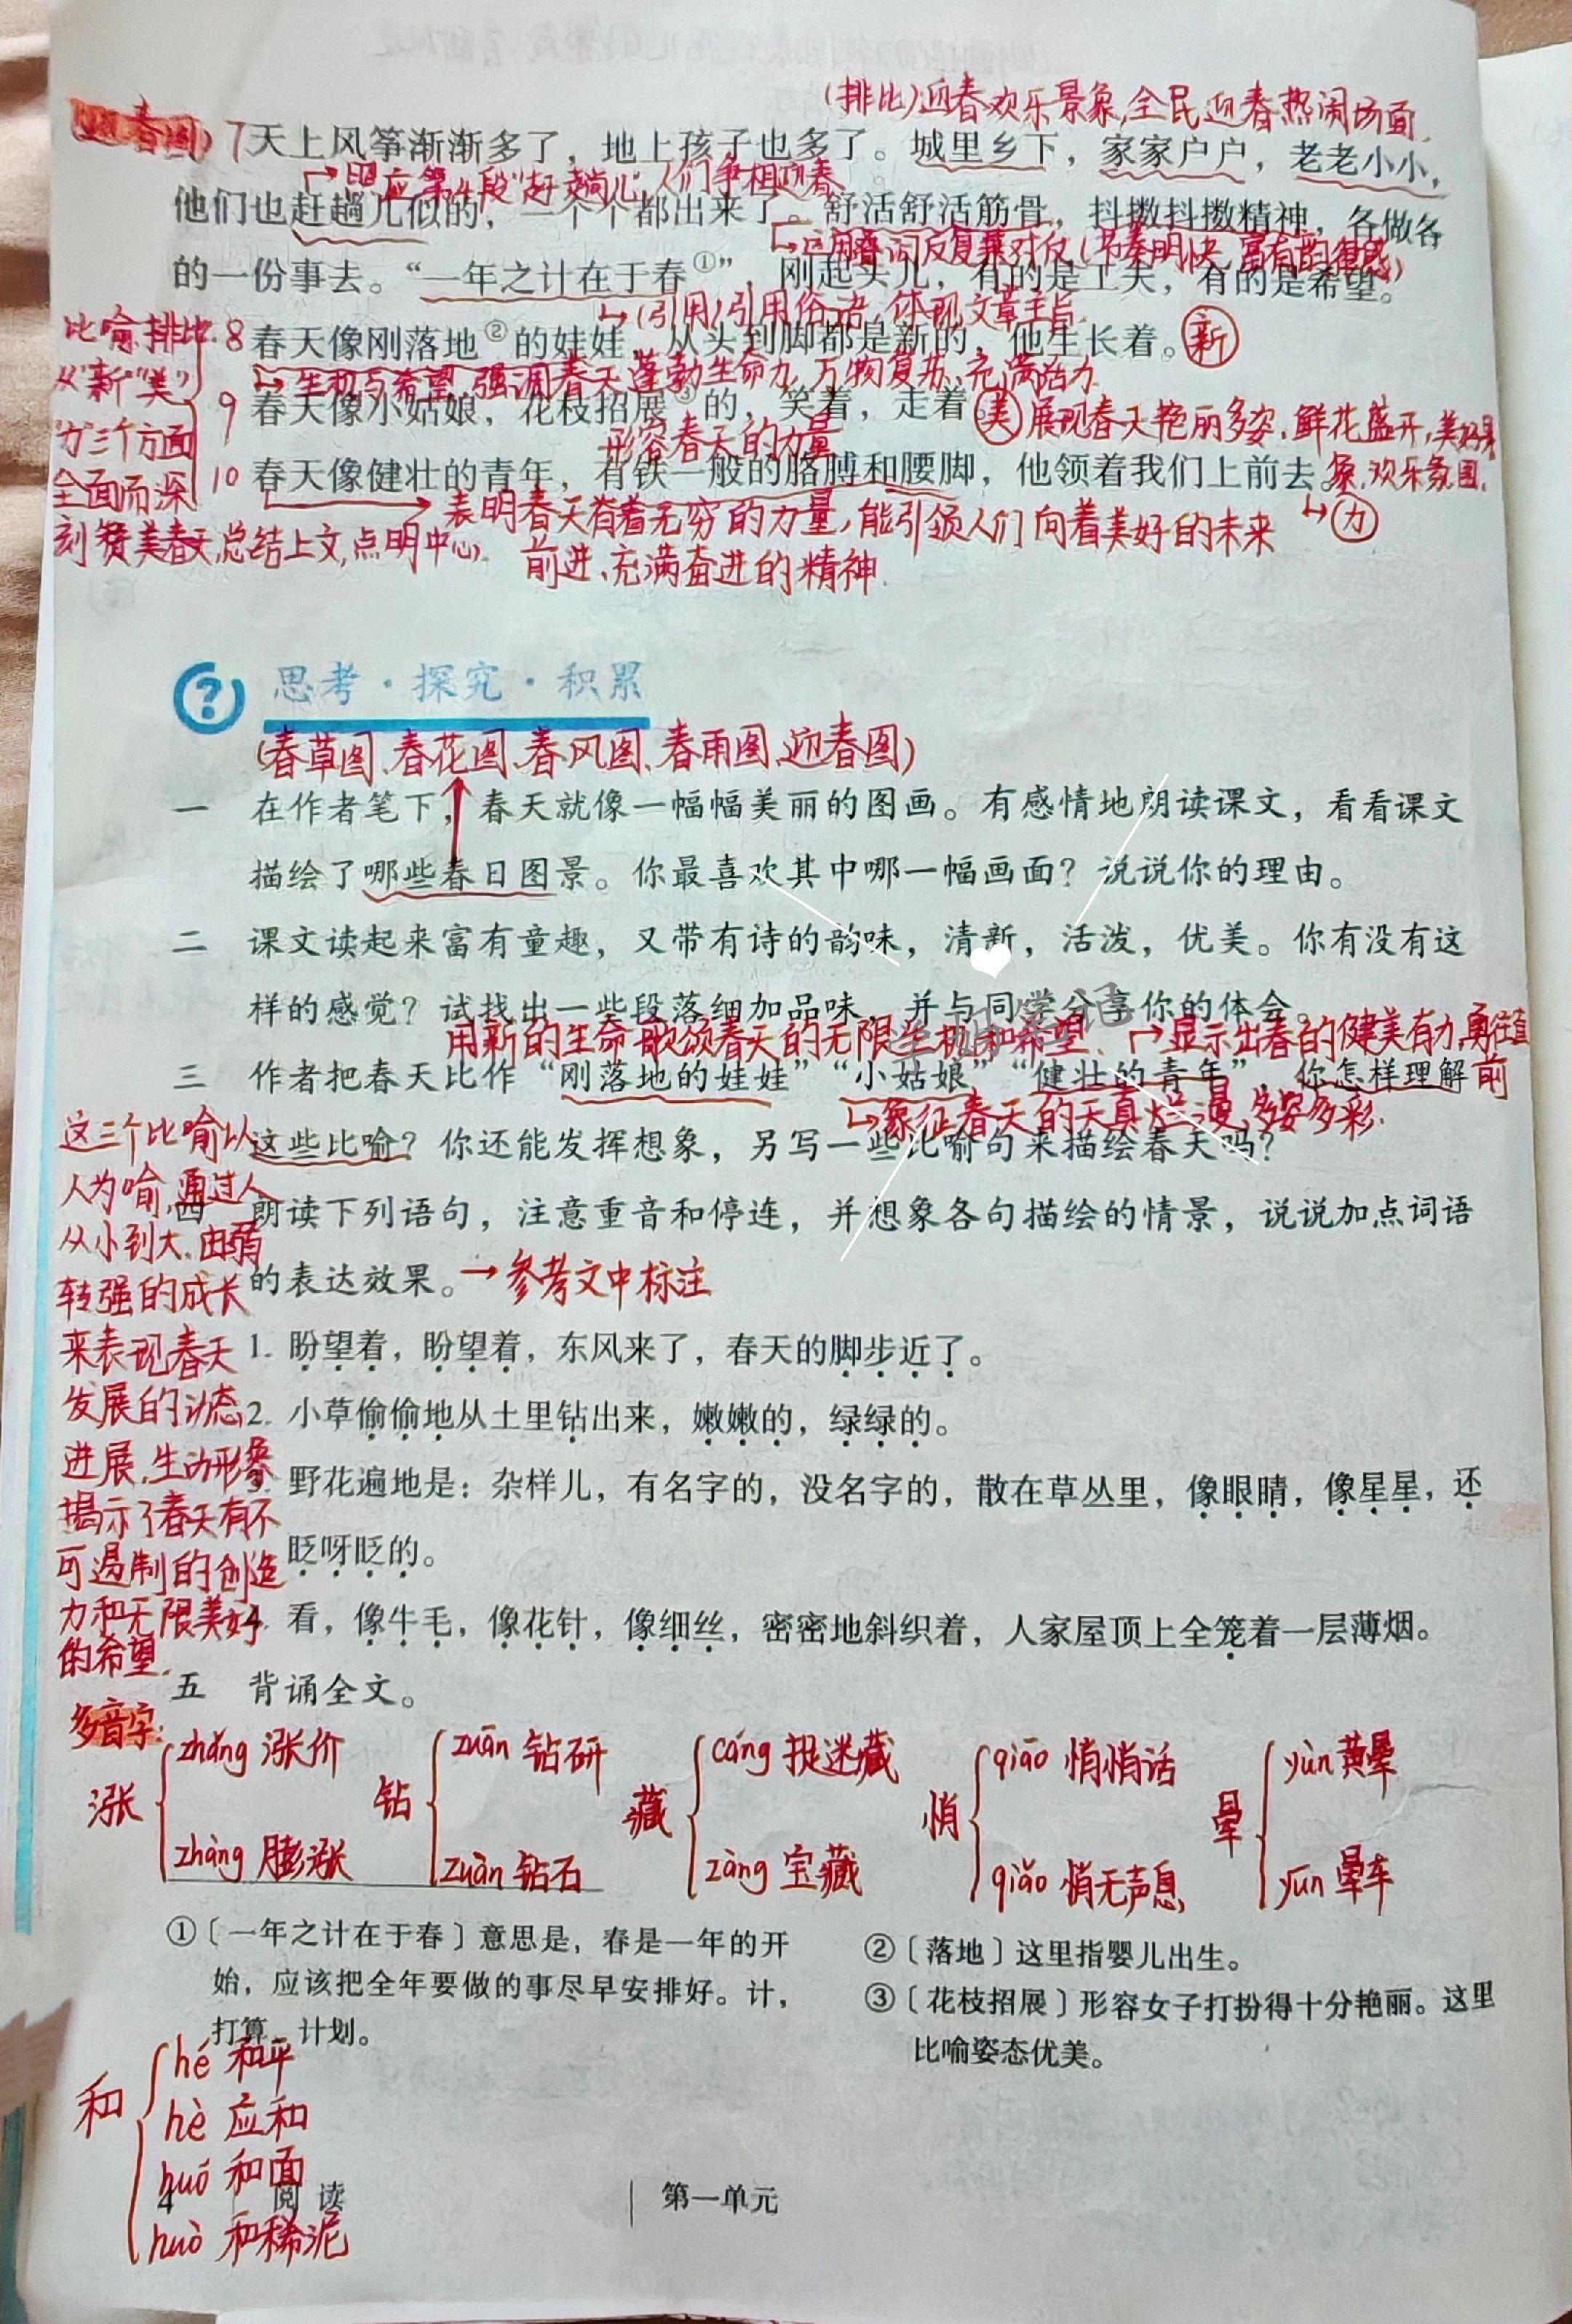 (排比)迎春欢乐景象,全民迎春热闹场面.
春图) 7天上风筝渐渐多了，地上孩子也多了。城里乡下，家家户户，老老小小，
应第4段"赶趟儿"人们争相迎春
他们也赶趟儿似的，一个个都出来了。舒活舒活筋骨，抖擞抖擞精神，各做各
反复 对仗(节奏明快,富有韵律感)
的一份事去。“一年之计在于春①”，刚起头儿，有的是工夫，有的是希望。
(引用)引用俗语,体现文章主旨.
比喻.排比. 8 春天像刚落地②的娃娃，从头到脚都是新的，他生长着。新
从"新"美" 生机与希望,强调春天蓬勃生命力,万物复苏、充满活力
9 春天像小姑娘，花枝招展③的，笑着，走着。美 展现春天艳丽多姿.鲜花盛开,美好景
"力"三个方面 形容春天的力量
全面而深 10 春天像健壮的青年，有铁一般的胳膊和腰脚，他领着我们上前去。象.欢乐氛围.
表明春天有着无穷的力量,能引领人们向着美好的未来 力
刻赞美春天,总结上文,点明中心. 前进、充满奋进的精神.
思考·探究·积累
(春草图.春花图.春风图.春雨图.迎春图)
一 在作者笔下，春天就像一幅幅美丽的图画。有感情地朗读课文，看看课文
描绘了哪些春日图景。你最喜欢其中哪一幅画面？说说你的理由。
二 课文读起来富有童趣，又带有诗的韵味，清新，活泼，优美。你有没有这
样的感觉？试找出一些段落细加品味，并与同学分享你的体会。
用新的生命歌颂春天的无限生机和希望. 显示出春的健美有力,勇往直
三 作者把春天比作“刚落地的娃娃”“小姑娘”“健壮的青年”，你怎样理解 前
象征春天的天真烂漫,多姿多彩.
这三个比喻以
这些比喻？你还能发挥想象，另写一些比喻句来描绘春天吗？
人为喻,通过人
四 朗读下列语句，注意重音和停连，并想象各句描绘的情景，说说加点词语
从小到大.由弱
的表达效果。→参考文中标注
转强的成长
来表现春天
1. 盼望着，盼望着，东风来了，春天的脚步近了。
发展的动态
2. 小草偷偷地从土里钻出来，嫩嫩的，绿绿的。
进展.生动形象
3. 野花遍地是：杂样儿，有名字的，没名字的，散在草丛里，像眼睛，像星星，还
揭示了春天有不
眨呀眨的。
可遏制的创造
力和无限美好
4. 看，像牛毛，像花针，像细丝，密密地斜织着，人家屋顶上全笼着一层薄烟。
的希望.
五 背诵全文。
多音字:
zhǎng 涨价 zuān 钻研 cáng 捉迷藏 qiāo 悄悄话 yùn 黄晕
涨 钻 藏 悄 晕
zhàng 膨涨 zuàn 钻石 zàng 宝藏 qiǎo 悄无声息 yūn 晕车
①〔一年之计在于春〕意思是，春是一年的开
始，应该把全年要做的事尽早安排好。计，
打算、计划。
②〔落地〕这里指婴儿出生。
③〔花枝招展〕形容女子打扮得十分艳丽。这里
比喻姿态优美。
hé 和平
和
hè 应和
huó 和面
4 阅读 第一单元
huò 和稀泥